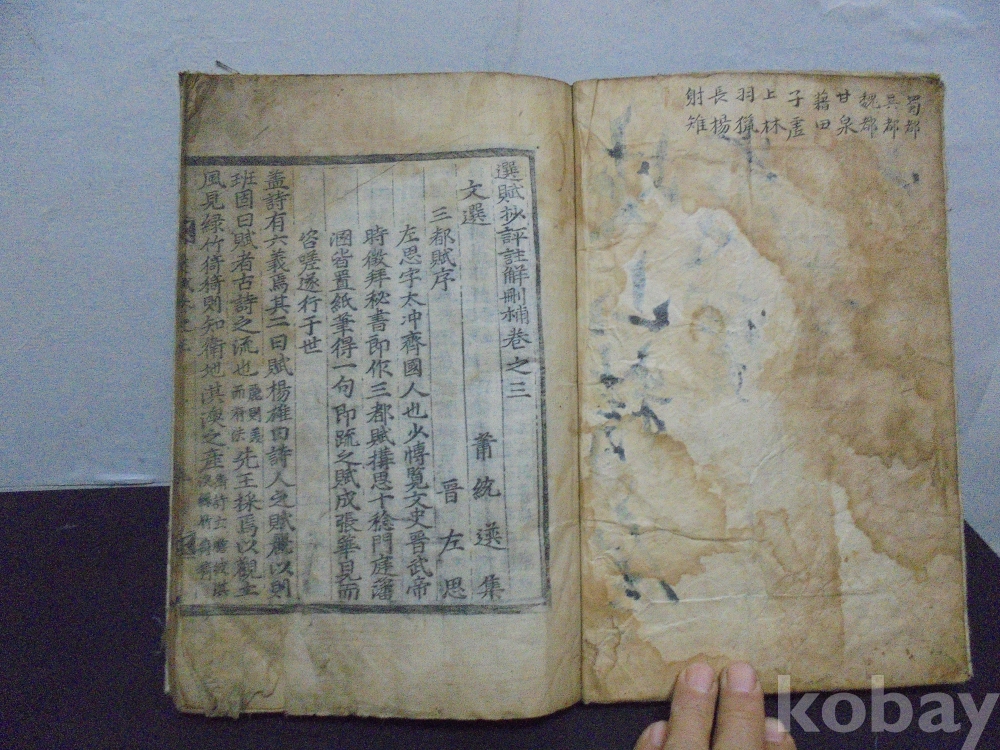 蜀都
吳都
魏都
甘泉
藉田
子虛
上林
羽獵
長楊
射雉
選賦抄評註解刪補卷之三
文選 蕭統選集
三都賦序 晉左思
左思字太冲齊國人也少博覧文史晋武帝
時徵拜秘書即作三都賦搆思十稔門庭藩
溷皆置紙筆得一句即䟽之賦成張華見而
咨嗟遂行于世
盖詩有六義焉其二曰賦楊雄曰詩人之賦麗以則
班固曰賦者古詩之流也先王採焉以觀土
風見緑竹猗猗則知衛地淇澳之産
kobay